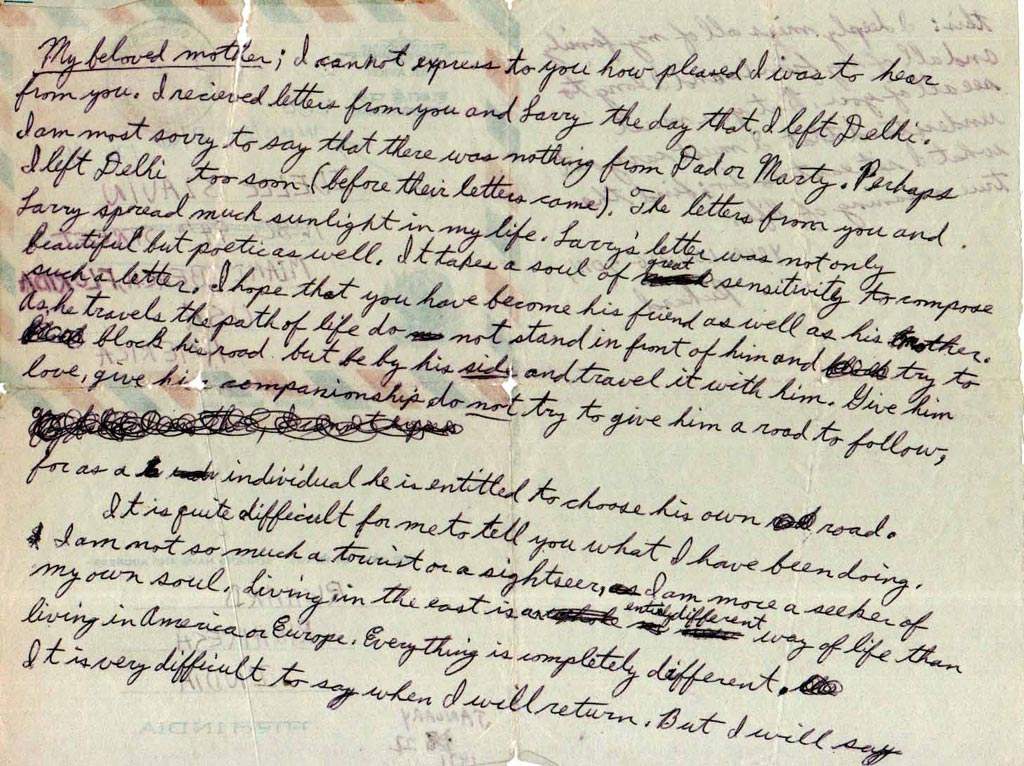 My beloved mother; I cannot express to you how pleased I was to hear
from you. I recieved letters from you and Larry the day that I left Delhi.
I am most sorry to say that there was nothing from Dad or Marty. Perhaps
I left Delhi too soon (before their letters came). The letters from you and
Larry spread much sunlight in my life. Larry's letter was not only
beautiful but poetic as well. It takes a soul of great sensitivity to compose
such a letter. I hope that you have become his friend as well as his mother.
As he travels the path of life do not stand in front of him and try to
block his road but be by his side and travel it with him. Give him
love, give him companionship do not try to give him a road to follow,
for as a individual he is entitled to choose his own road.
It is quite difficult for me to tell you what I have been doing.
I am not so much a tourist or a sightseer, I am more a seeker of
my own soul. Living in the east is an entirely different way of life than
living in America or Europe. Everything is completely different.
It is very difficult to say when I will return. But I will say